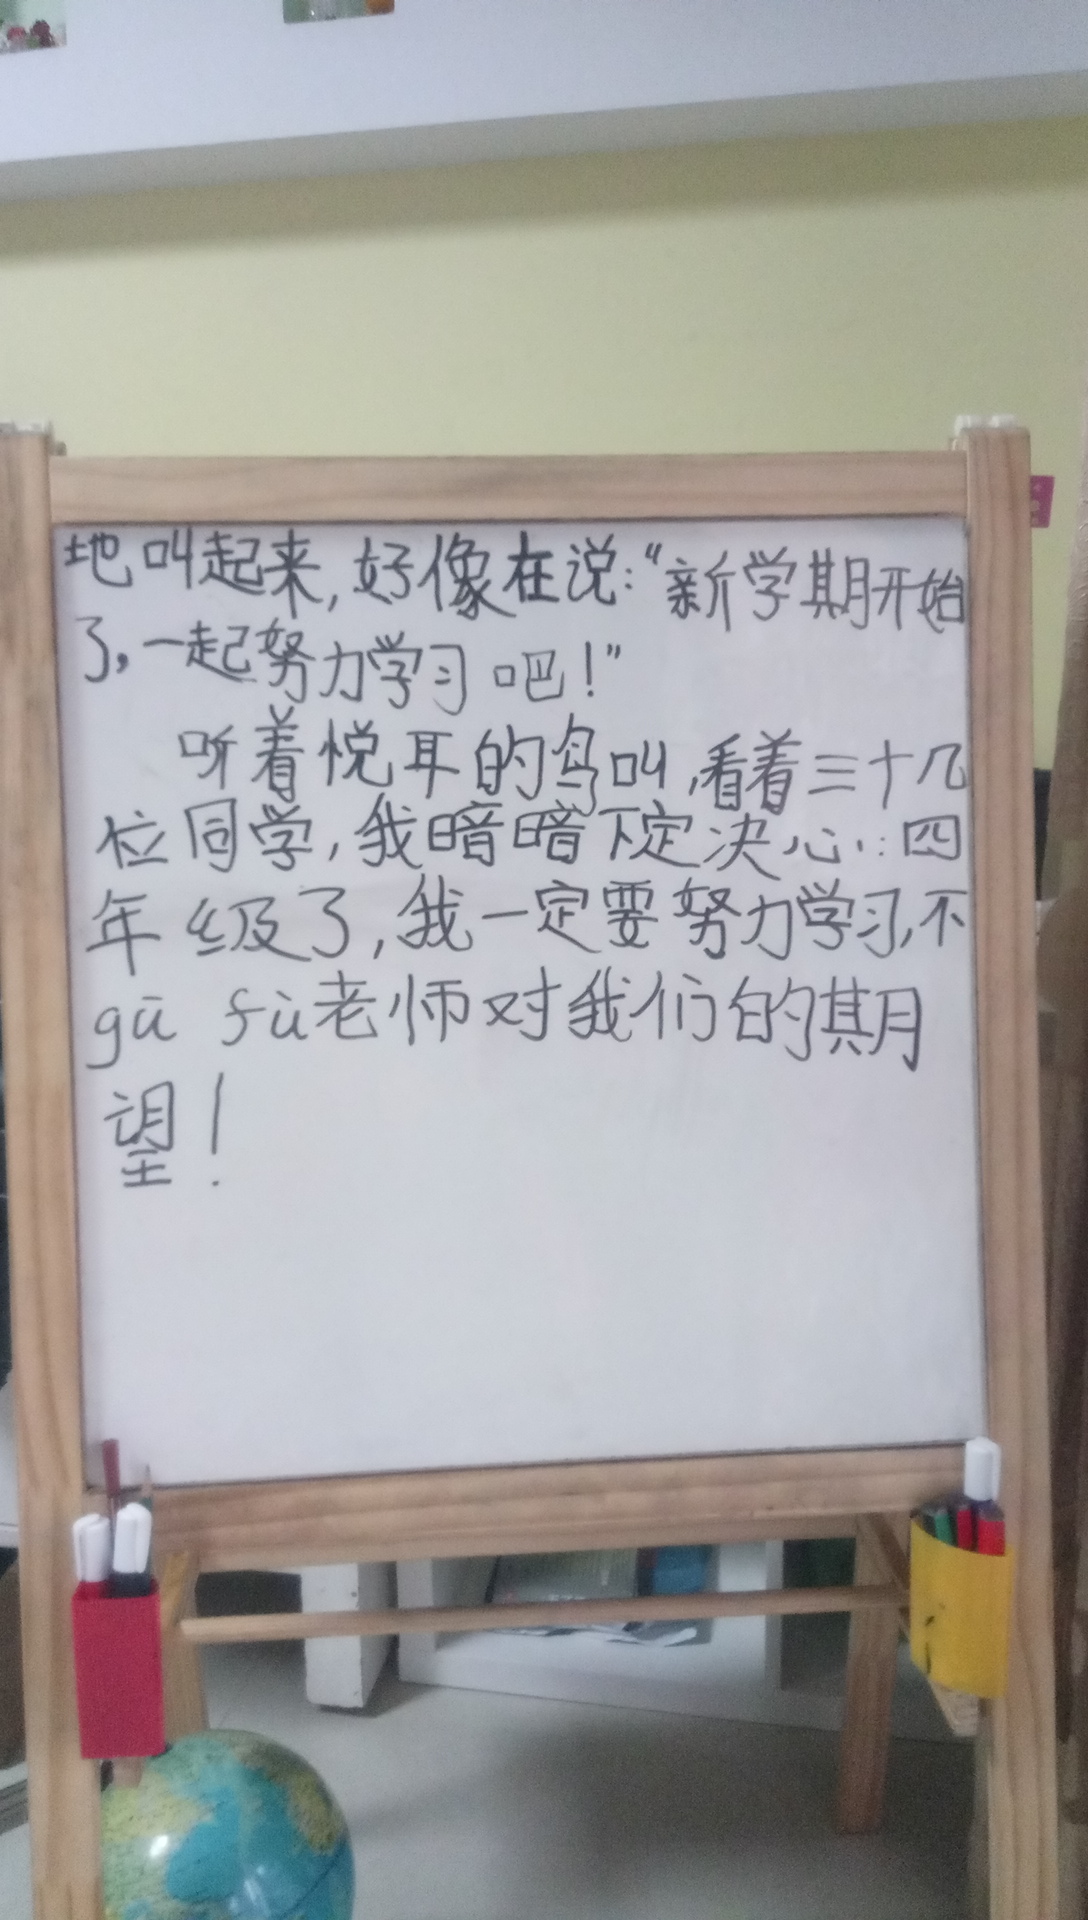 地叫起来,好像在说:“新学期开始
了,一起努力学习吧!”
听着悦耳的鸟叫,看着三十几
位同学,我暗暗下定决心:四
年级了,我一定要努力学习,不
gū fù老师对我们的期
望!